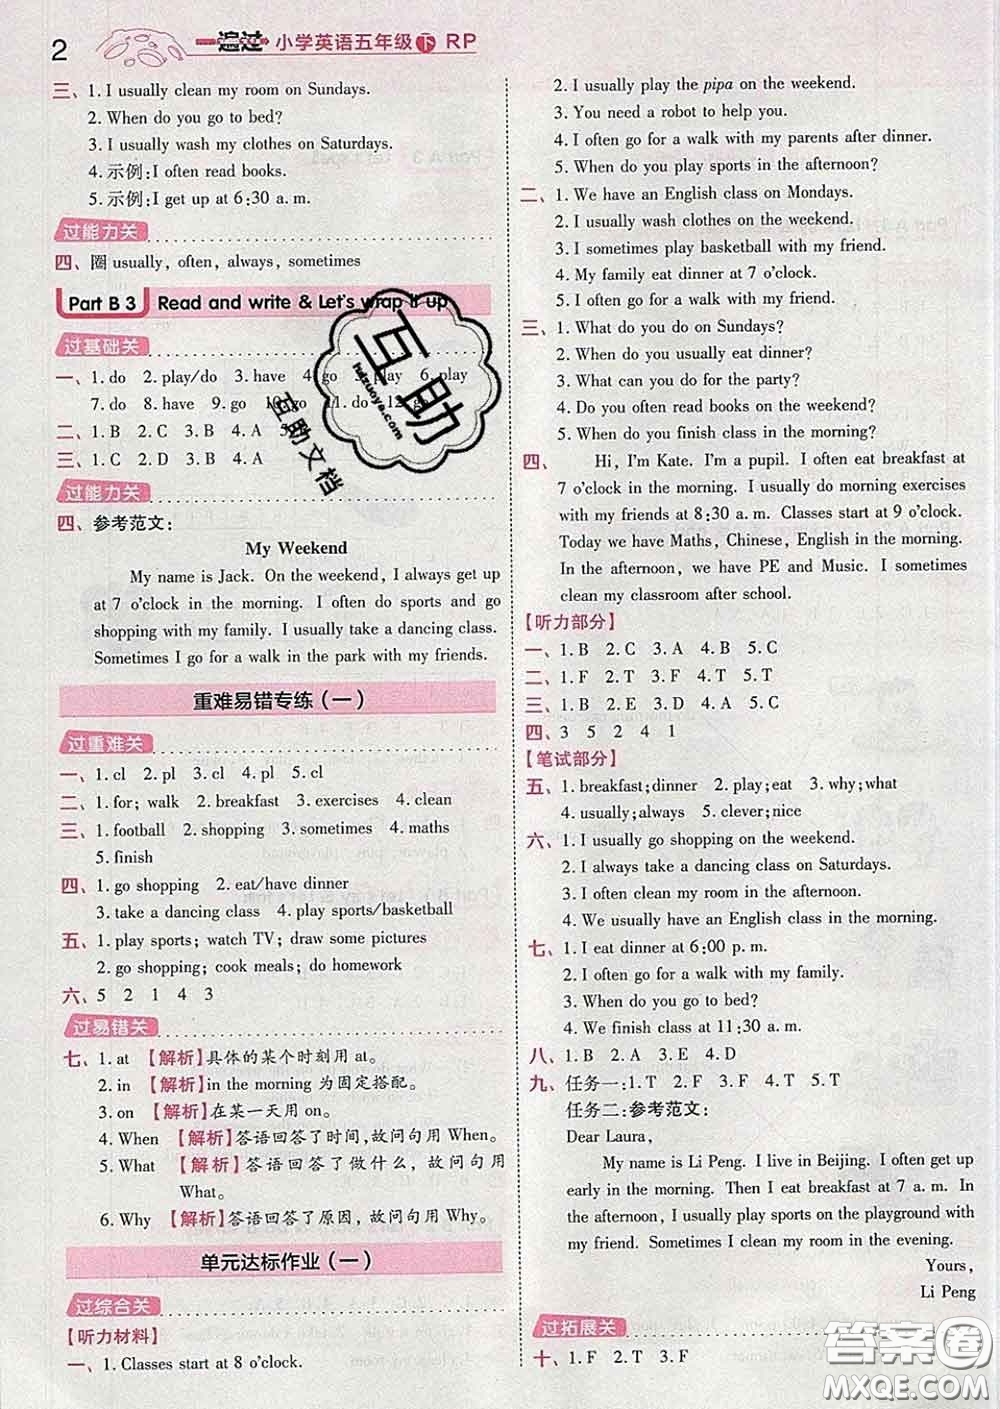 2
一遍过 小学英语五年级 下 RP
三、1. I usually clean my room on Sundays.
2. When do you go to bed?
3. I usually wash my clothes on Saturdays.
4. 示例:I often read books.
5. 示例:I get up at 6:30 a. m.
过能力关
四、圈 usually, often, always, sometimes
Part B 3 Read and write & Let's wrap it up
过基础关
一、1. do 2. play/do 3. have 4. go 5. play 6. play
7. do 8. have 9. go 10. go 11. do 12. go
二、1. B 2. C 3. B 4. A
三、1. C 2. D 3. B 4. A
过能力关
四、参考范文:
My Weekend
My name is Jack. On the weekend, I always get up
at 7 o'clock in the morning. I often do sports and go
shopping with my family. I usually take a dancing class.
Sometimes I go for a walk in the park with my friends.
重难易错专练(一)
过重难关
一、1. cl 2. pl 3. cl 4. pl 5. cl
二、1. for; walk 2. breakfast 3. exercises 4. clean
三、1. football 2. shopping 3. sometimes 4. maths
5. finish
四、1. go shopping 2. eat/have dinner
3. take a dancing class 4. play sports/basketball
五、1. play sports; watch TV; draw some pictures
2. go shopping; cook meals; do homework
六、5 2 1 4 3
过易错关
七、1. at 【解析】具体的某个时刻用 at。
2. in 【解析】in the morning 为固定搭配。
3. on 【解析】在某一天用 on。
4. When 【解析】答语回答了时间,故问句用 When。
5. What 【解析】答语回答了做什么,故问句用
What。
6. Why 【解析】答语回答了原因,故问句用 Why。
单元达标作业(一)
过综合关
【听力材料】
一、1. Classes start at 8 o'clock.
2. I usually play the pipa on the weekend.
3. You need a robot to help you.
4. I often go for a walk with my parents after dinner.
5. When do you play sports in the afternoon?
二、1. We have an English class on Mondays.
2. I usually wash clothes on the weekend.
3. I sometimes play basketball with my friend.
4. My family eat dinner at 7 o'clock.
5. I often go shopping with my friend.
三、1. What do you do on Sundays?
2. When do you usually eat dinner?
3. What can you do for the party?
4. Do you often read books on the weekend?
5. When do you finish class in the morning?
四、 Hi, I'm Kate. I'm a pupil. I often eat breakfast at
7 o'clock in the morning. I usually do morning exercises
with my friends at 8:30 a. m. Classes start at 9 o'clock.
Today we have Maths, Chinese, English in the morning.
In the afternoon, we have PE and Music. I sometimes
clean my classroom after school.
【听力部分】
一、1. B 2. C 3. A 4. B 5. C
二、1. F 2. T 3. F 4. T 5. T
三、1. B 2. E 3. D 4. A 5. C
四、3 5 2 4 1
【笔试部分】
五、1. breakfast;dinner 2. play;eat 3. why;what
4. usually;always 5. clever;nice
六、1. I usually go shopping on the weekend.
2. I always take a dancing class on Saturdays.
3. I often clean my room in the afternoon.
4. We usually have an English class in the morning.
七、1. I eat dinner at 6:00 p. m.
2. I often go for a walk with my family.
3. When do you go to bed?
4. We finish class at 11:30 a. m.
八、1. B 2. A 3. E 4. D 5. C
九、任务一:1. T 2. F 3. F 4. T 5. T
任务二:参考范文:
Dear Laura,
My name is Li Peng. I live in Beijing. I often get up
early in the morning. Then I eat breakfast at 7 a. m. In
the afternoon, I usually play sports on the playground with
my friend. Sometimes I clean my room in the evening.
Yours,
Li Peng
过拓展关
十、1. F 2. T 3. F
互助
hdzuoye.com
互助文档
答案圈
MXQE.COM